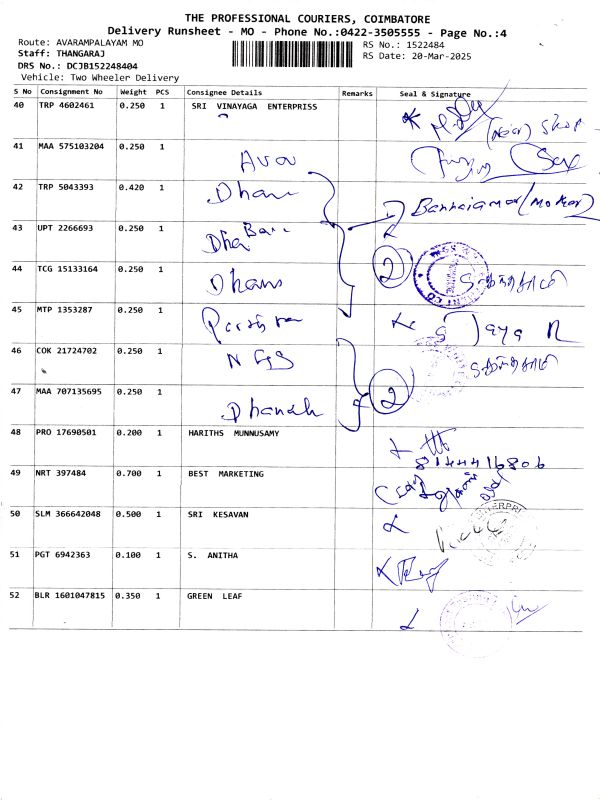 THE PROFESSIONAL COURIERS, COIMBATORE
Delivery Runsheet - MO - Phone No.:0422-3505555 - Page No.:4
Route: AVARAMPALAYAM MO
RS No.: 1522484
Staff: THANGARAJ
RS Date: 20-Mar-2025
DRS No.: DCJB152248404
Vehicle: Two Wheeler Delivery
S No Consignment No Weight PCS Consignee Details Remarks Seal & Signature
40 TRP 4602461 0.250 1 SRI VINAYAGA ENTERPRISS
(Near) Shop
41 MAA 575103204 0.250 1
42 TRP 5043393 0.420 1 Dhan
43 UPT 2266693 0.250 1
44 TCG 15133164 0.250 1 Dhans 2
45 MTP 1353287 0.250 1 Jaya R
46 COK 21724702 0.250 1
47 MAA 707135695 0.250 1 Dhanah 2
48 PRO 17690501 0.200 1 HARITHS MUNNUSAMY
8144416806
49 NRT 397484 0.700 1 BEST MARKETING
50 SLM 366642048 0.500 1 SRI KESAVAN
51 PGT 6942363 0.100 1 S. ANITHA
52 BLR 1601047815 0.350 1 GREEN LEAF